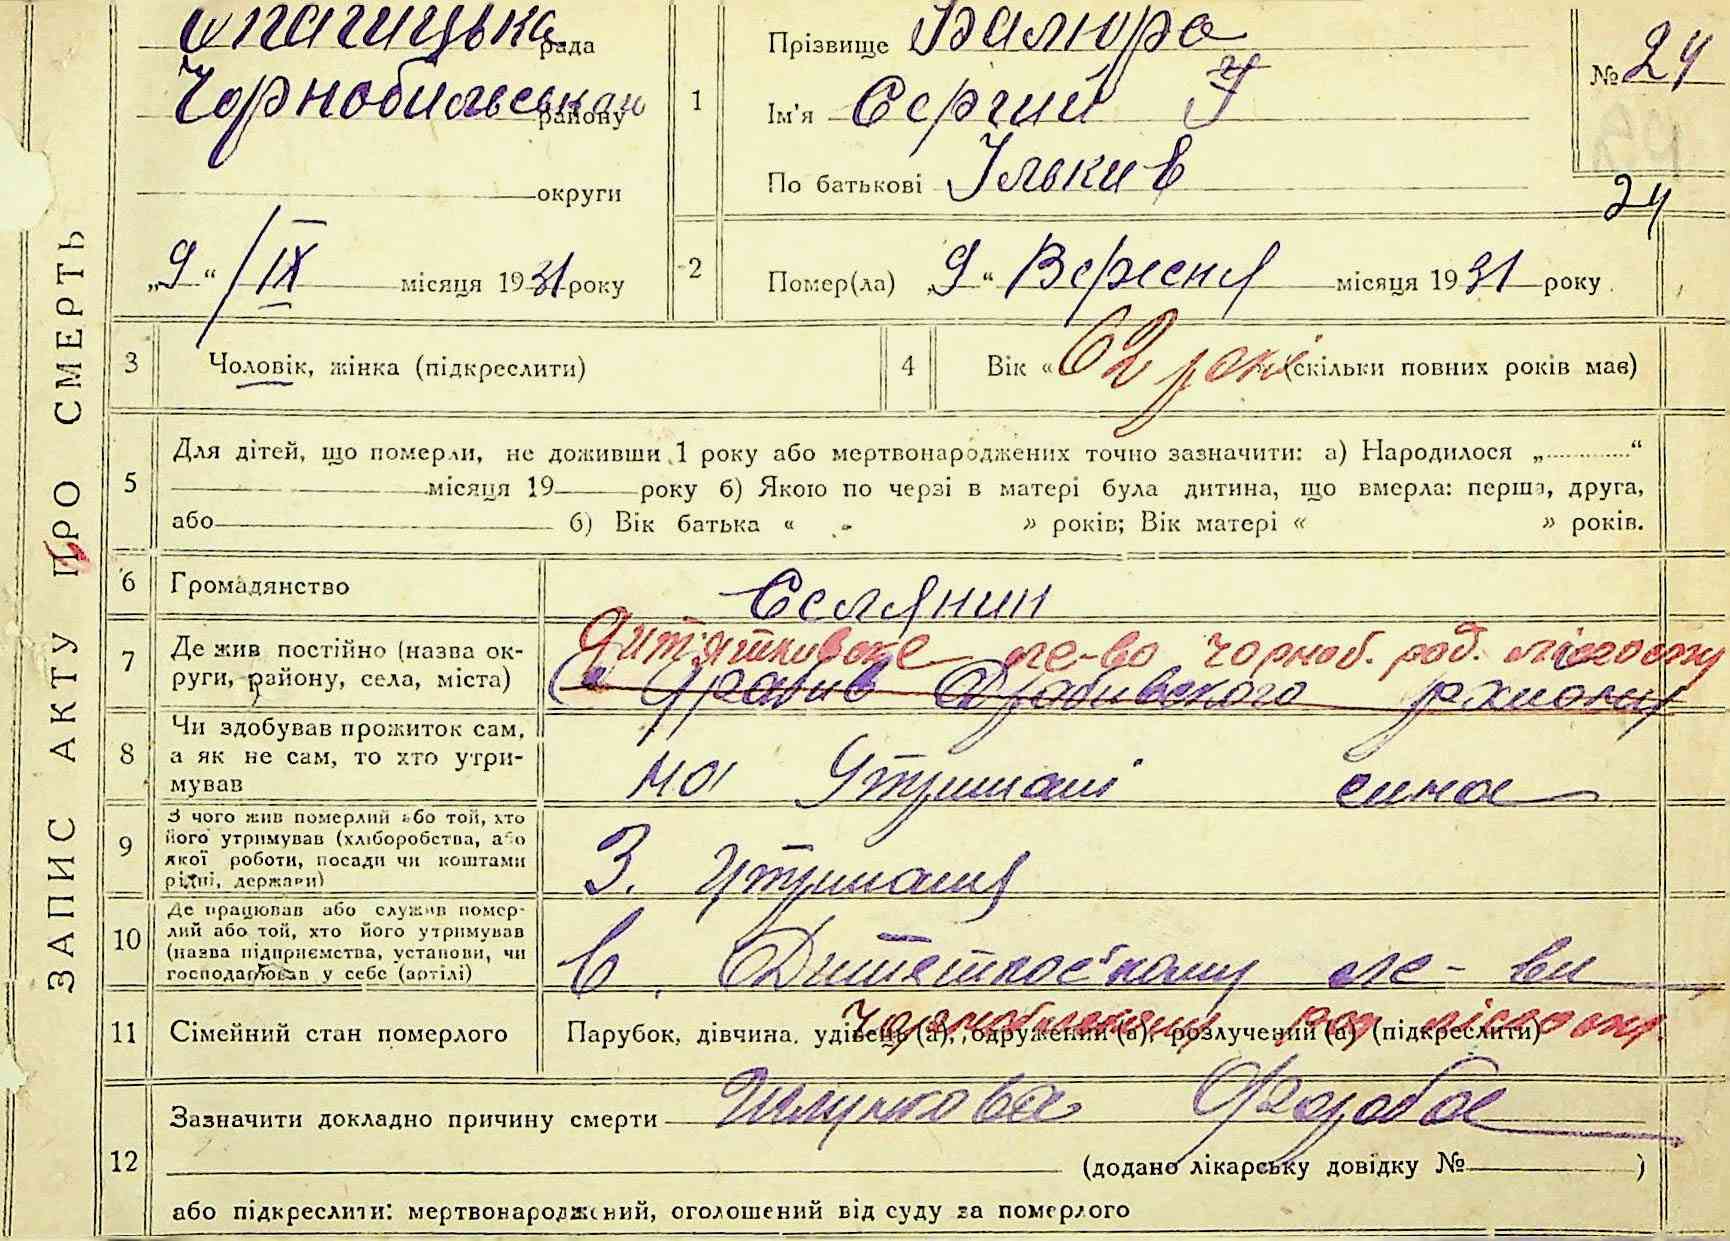 Опачицька рада
Чорнобильського району
округи
„9“ /IX місяця 1931 року
ЗАПИС АКТУ ПРО СМЕРТЬ
1
Прізвище
Ім'я Сергий
По батькові Ількив
№ 24
24
2
Помер(ла) „9“ Вересня місяця 1931 року
3 Чоловік, жінка (підкреслити)
4 Вік « 62 роки (скільки повних років мав)
5
Для дітей, що померли, не доживши 1 року або мертвонароджених точно зазначити: а) Народилося „..........“
місяця 19 року б) Якою по черзі в матері була дитина, що вмерла: перша, друга,
або б) Вік батька « » років; Вік матері « » років.
6 Громадянство Селянин
7 Де жив постійно (назва ок-
руги, району, села, міста)
Дитятковске ле-во Чорноб. рад. лісгоспу
Драбив Драбивского району
8 Чи здобував прожиток сам,
а як не сам, то хто утри-
мував
на Утримані сина
9 З чого жив померлий або той, хто
його утримував (хліборобства, або
якої роботи, посади чи коштами
рідні, держави)
З. Утриманя
10 Де працював або служив помер-
лий або той, хто його утримував
(назва підприємства, установи, чи
господарював у себе (артілі)
в. ле-ви
рад лісгоспу.
11 Сімейний стан померлого
Парубок, дівчина, удівець (а), одружений (а), розлучений (а) (підкреслити)
12
Зазначити докладно причину смерти Шлункова Хвороба
(додано лікарську довідку № )
або підкреслити: мертвонароджений, оголошений від суду за померлого